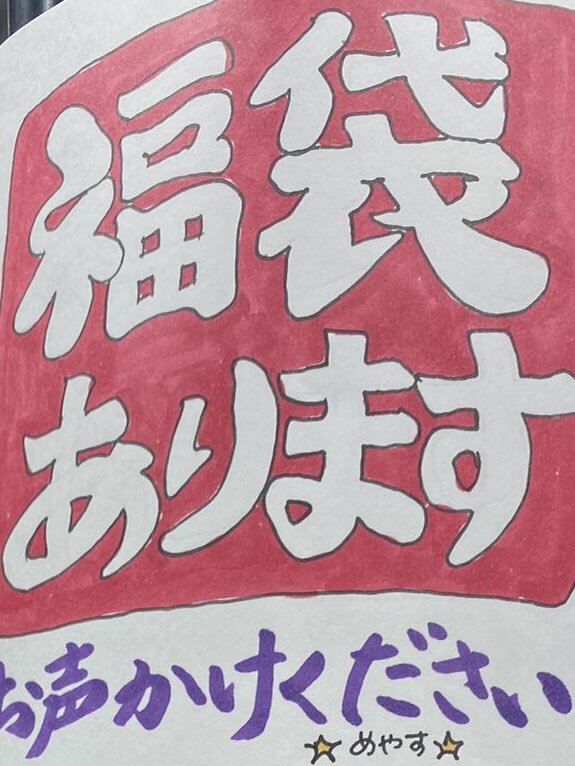 福袋
あります
お声かけください
☆めやす☆